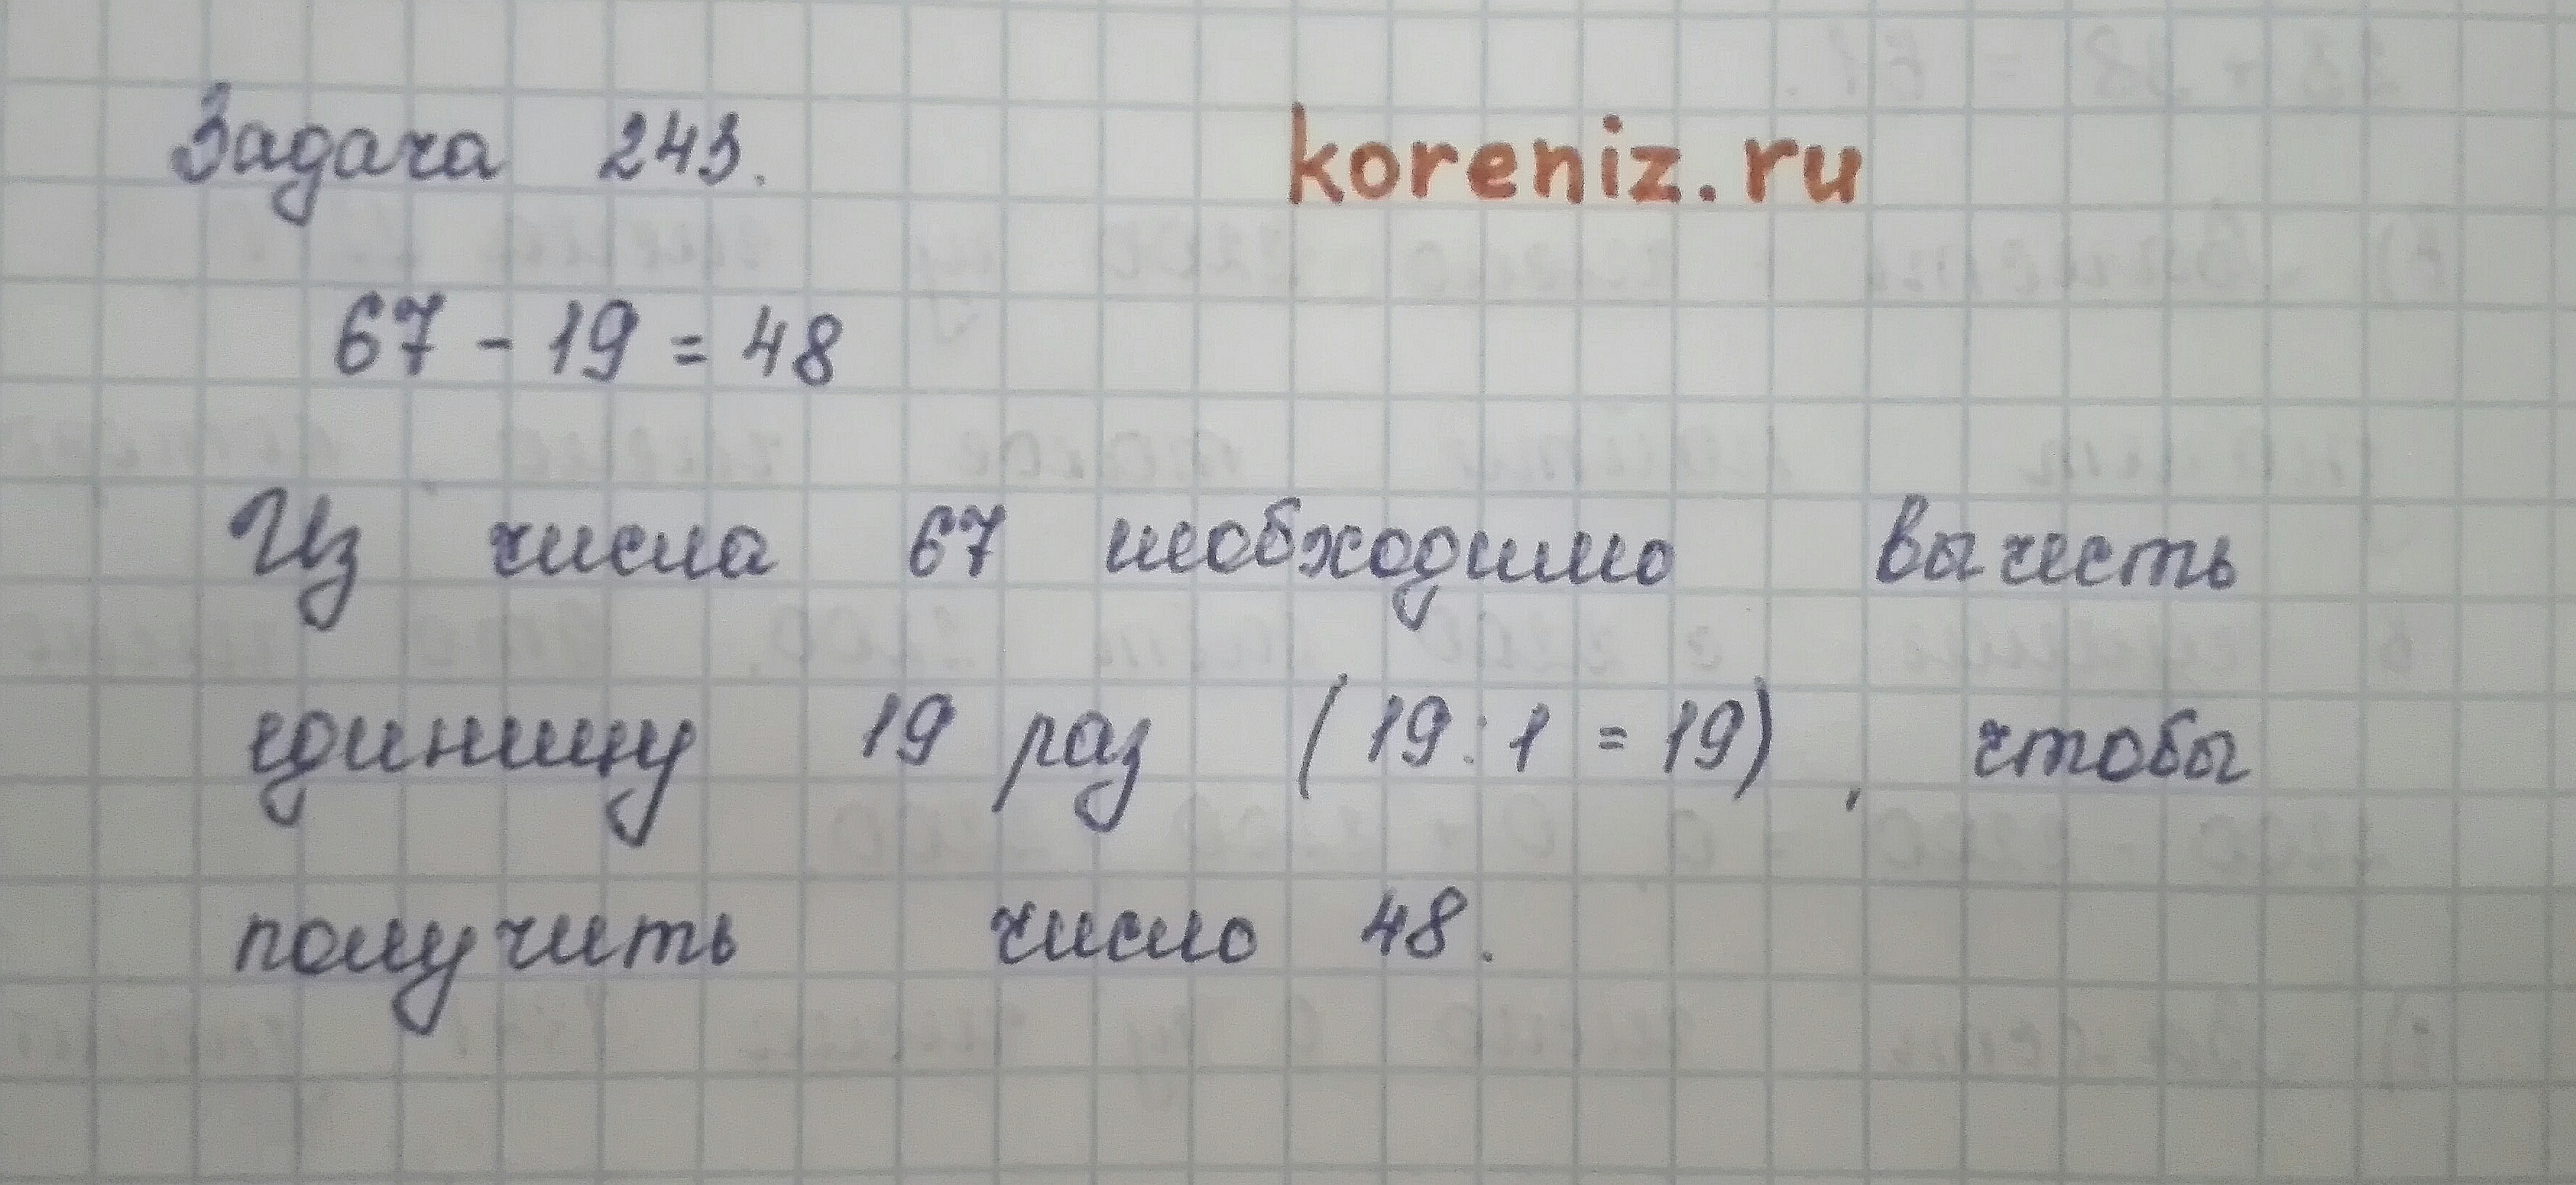 Задача 243.
koreniz.ru
67 - 19 = 48
Из числа 67 необходимо вычесть
единицу 19 раз (19 : 1 = 19), чтобы
получить число 48.